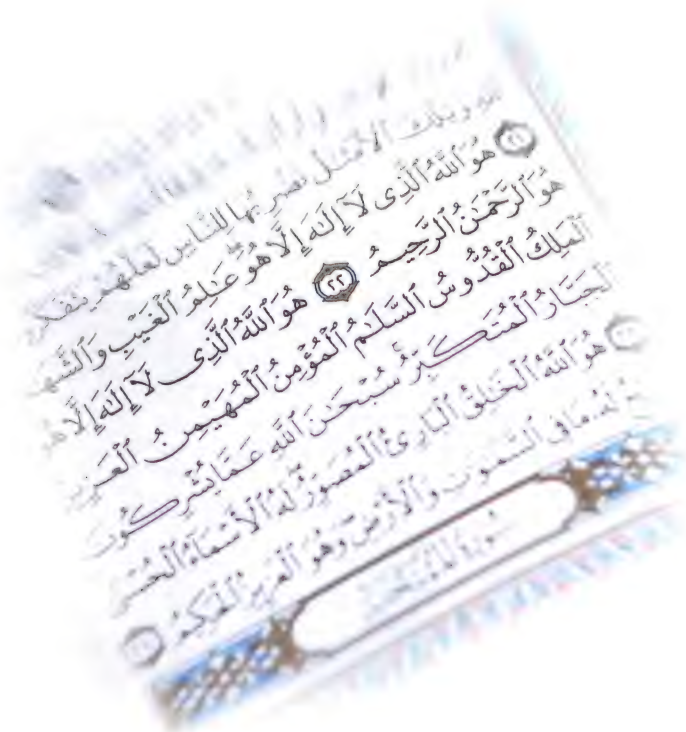 وَتِلْكَ ٱلْأَمْثَٰلُ نَضْرِبُهَا لِلنَّاسِ لَعَلَّهُمْ يَتَفَكَّرُ
٢١ هُوَ ٱللَّهُ ٱلَّذِى لَآ إِلَٰهَ إِلَّا هُوَ عَٰلِمُ ٱلْغَيْبِ وَٱلشَّهَ
هُوَ ٱلرَّحْمَٰنُ ٱلرَّحِيمُ ٢٢ هُوَ ٱللَّهُ ٱلَّذِى لَآ إِلَٰهَ إِلَّا هُوَ
ٱلْمَلِكُ ٱلْقُدُّوسُ ٱلسَّلَٰمُ ٱلْمُؤْمِنُ ٱلْمُهَيْمِنُ ٱلْعَزِيزُ
ٱلْجَبَّارُ ٱلْمُتَكَبِّرُ سُبْحَٰنَ ٱللَّهِ عَمَّا يُشْرِكُونَ
هُوَ ٱللَّهُ ٱلْخَٰلِقُ ٱلْبَارِئُ ٱلْمُصَوِّرُ لَهُ ٱلْأَسْمَآءُ ٱلْحُسْنَ
لَهُۥ مَا فِى ٱلسَّمَٰوَٰتِ وَٱلْأَرْضِ وَهُوَ ٱلْعَزِيزُ ٱلْحَكِيمُ
سُورَةُ ٱلْمُمْتَحَنَةِ